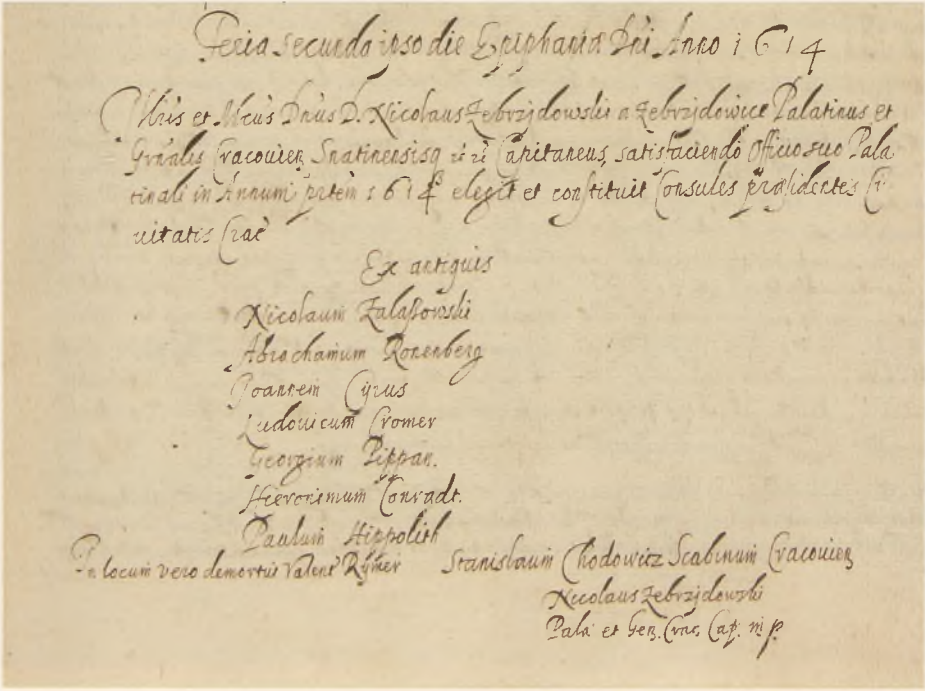 Feria secunda ipso die Epiphania Dni Anno 1614
Illris et Mcus Dnus D. Nicolaus Zebrzjdowski a Zebrzjdowice Palatinus et
Gnralis Cracouien Snatinensisq Capitaneus, satisfaciendo Officio suo Pala
tinali in Annum pntem 1614 elegit et constituit Consules præsidentes Ci
uitatis Crac
Ex antiquis
Nicolaum Zalaßowski
Abrochamum Ronenberg
Joannem Cyrus
Ludouicum Cromer
Georgium Pippan.
Hieronimum Conradt.
Paulum Hippolith
In locum vero demortui Valent Rÿmer Stanislaum Chodowitz Scabinum Cracouien
Nicolaus Zebrzjdowski
Pala et Gen. Crac. Cap. m p.